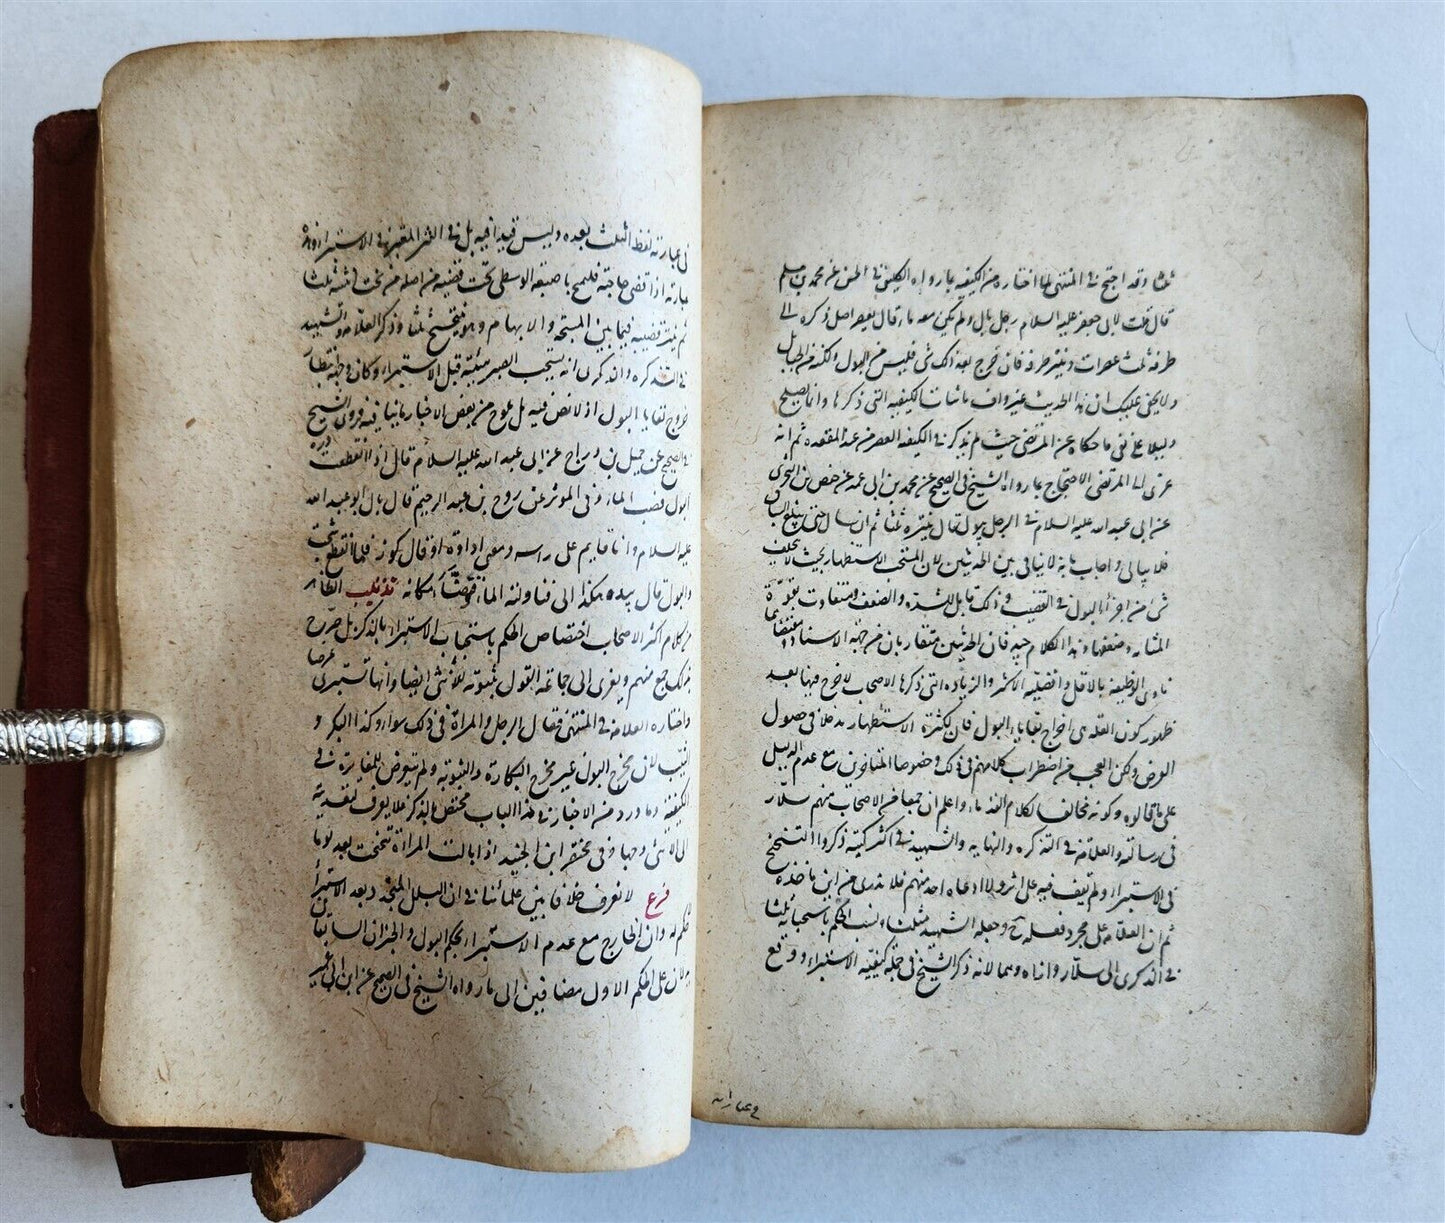 ثلثا وقد احتج في المنتهى لما اختاره من الكيفيه بما رواه الكليني في الحسن عن محمد بن مسلم
قال قلت لابي جعفر عليه السلام رجل بال ولم يكن معه ماء قال يعصر اصل ذكره الى
طرفه ثلث عصرات وينتر طرفه فان خرج بعد ذلك شي فليس من البول ولكنه من الحبايل
ولا يخفى عليك ان هذا الحديث غير واف باثبات الكيفيه التي ذكرها وانما يصلح
دليلا على نفي ما حكاه عن المرتضى حيث لم يذكر في الكيفيه العصر من عند المقعده ثم انه
عزى الى المرتضى الاحتجاج بما رواه الشيخ في الصحيح عن محمد بن ابي عمير عن حفص بن البختري
عن ابي عبد الله عليه السلام في الرجل يبول قال ينتره ثلثا ثم ان سال حتى يبلغ الساق
فلا يبالي واجاب بانه لا تنافي بين الحديثين لان المستحب الاستظهار بحيث لا يتخلف
شي من اجزاء البول في القضيب وذلك قابل للشده والضعف ومتفاوت بقوة
المثانه وضعفها وهذا الكلام جيد فان الحديثين متقاربان من جهة الاسناد
تادي الوظيفه بالاقل وافضليه الاكثر والزياده التي ذكرها الاصحاب لا حرج فيها بعد
ظهور كون القصد الى اخراج بقايا البول فان لكثرة الاستظهار مدخلا في حصول
الغرض ولكن العجب من اضطراب كلامهم في ذلك وخصوصا المتاخرين مع عدم الدليل
على ما قالوه وكونه مخالف لكلام القدماء واعلم ان جمعا من الاصحاب منهم سلار
في رسالته والعلامه في التذكره والنهايه والشهيد في اكثر كتبه ذكروا التنحنح
في الاستبراء ولم يقف فيه على اثر ولا ادعاه احد منهم فلا ندري من اين ماخذه
ثم ان العلامه على مجرد فعله وجعله الشهيد مثلثا ونسب الحكم باستحبابه ثلثا
في الذكرى الى سلار وازاه وهما لانه ذكر الشيخ في جملة كيفيه الاستبراء ووقع
في عبارته
في عبارته لفظ الثلث بعده وليس قيدا فيه بل في النتر المعتبر في الاستبراء وهذه
عبارته اذا قضى حاجته فليمسح باصبعه الوسطى تحت قضيبه من اصله من تحت انثييه ثلثا
ثم ينتر قضيبه فيما بين المسبحه والابهام وهو يتنحنح ثلثا وذكر العلامه والشهيد
في التذكره والذكرى انه يستحب الصبر هنيئه قبل الاستبراء وكان وجهه انتظار
خروج بقايا البول اذ لا نص فيه بل يلوح من بعض الاخبار ما ينافيه فروى الشيخ
في الصحيح عن جميل بن دراج عن ابي عبد الله عليه السلام قال اذا انقطعت درة
البول فصب الماء وفي الموثق عن روح بن عبد الرحيم قال بال ابو عبد الله
عليه السلام وانا قايم على راسه ومعي اداوة او قال كوز فلما انقطع شخب
البول قال بيده هكذا الي فناولته الماء فتوضأ مكانه تذنيب الظاهر
من كلام اكثر الاصحاب اختصاص الحكم باستحباب الاستبراء بالذكر بل صرح
بذلك جمع منهم ويعزى الى جماعة القول بثبوته للانثى ايضا وانها تستبرئ عرضا
واختاره العلامه في المنتهى فقال الرجل والمراة في ذلك سواء وكذا البكر و
الثيب لان مخرج البول غير مخرج البكارة والثيوبه ولم يتعرض للمغايرة في
الكيفيه وما ورد من الاخبار في هذا الباب مختص بالذكر فلا يعرف لتعديته
الى الانثى وجها وفي مختصر ابن الجنيد اذا بالت المراة تنحنحت بعد بولها
فرع لا نعرف خلافا بين علمائنا في ان البلل المتجدد بعد الاستبراء
لا حكم له وان الخارج مع عدم الاستبراء بحكم البول والخبران السابقان
يدلان على الحكم الاول مضافين الى ما رواه الشيخ في الصحيح عن ابن ابي يعفور